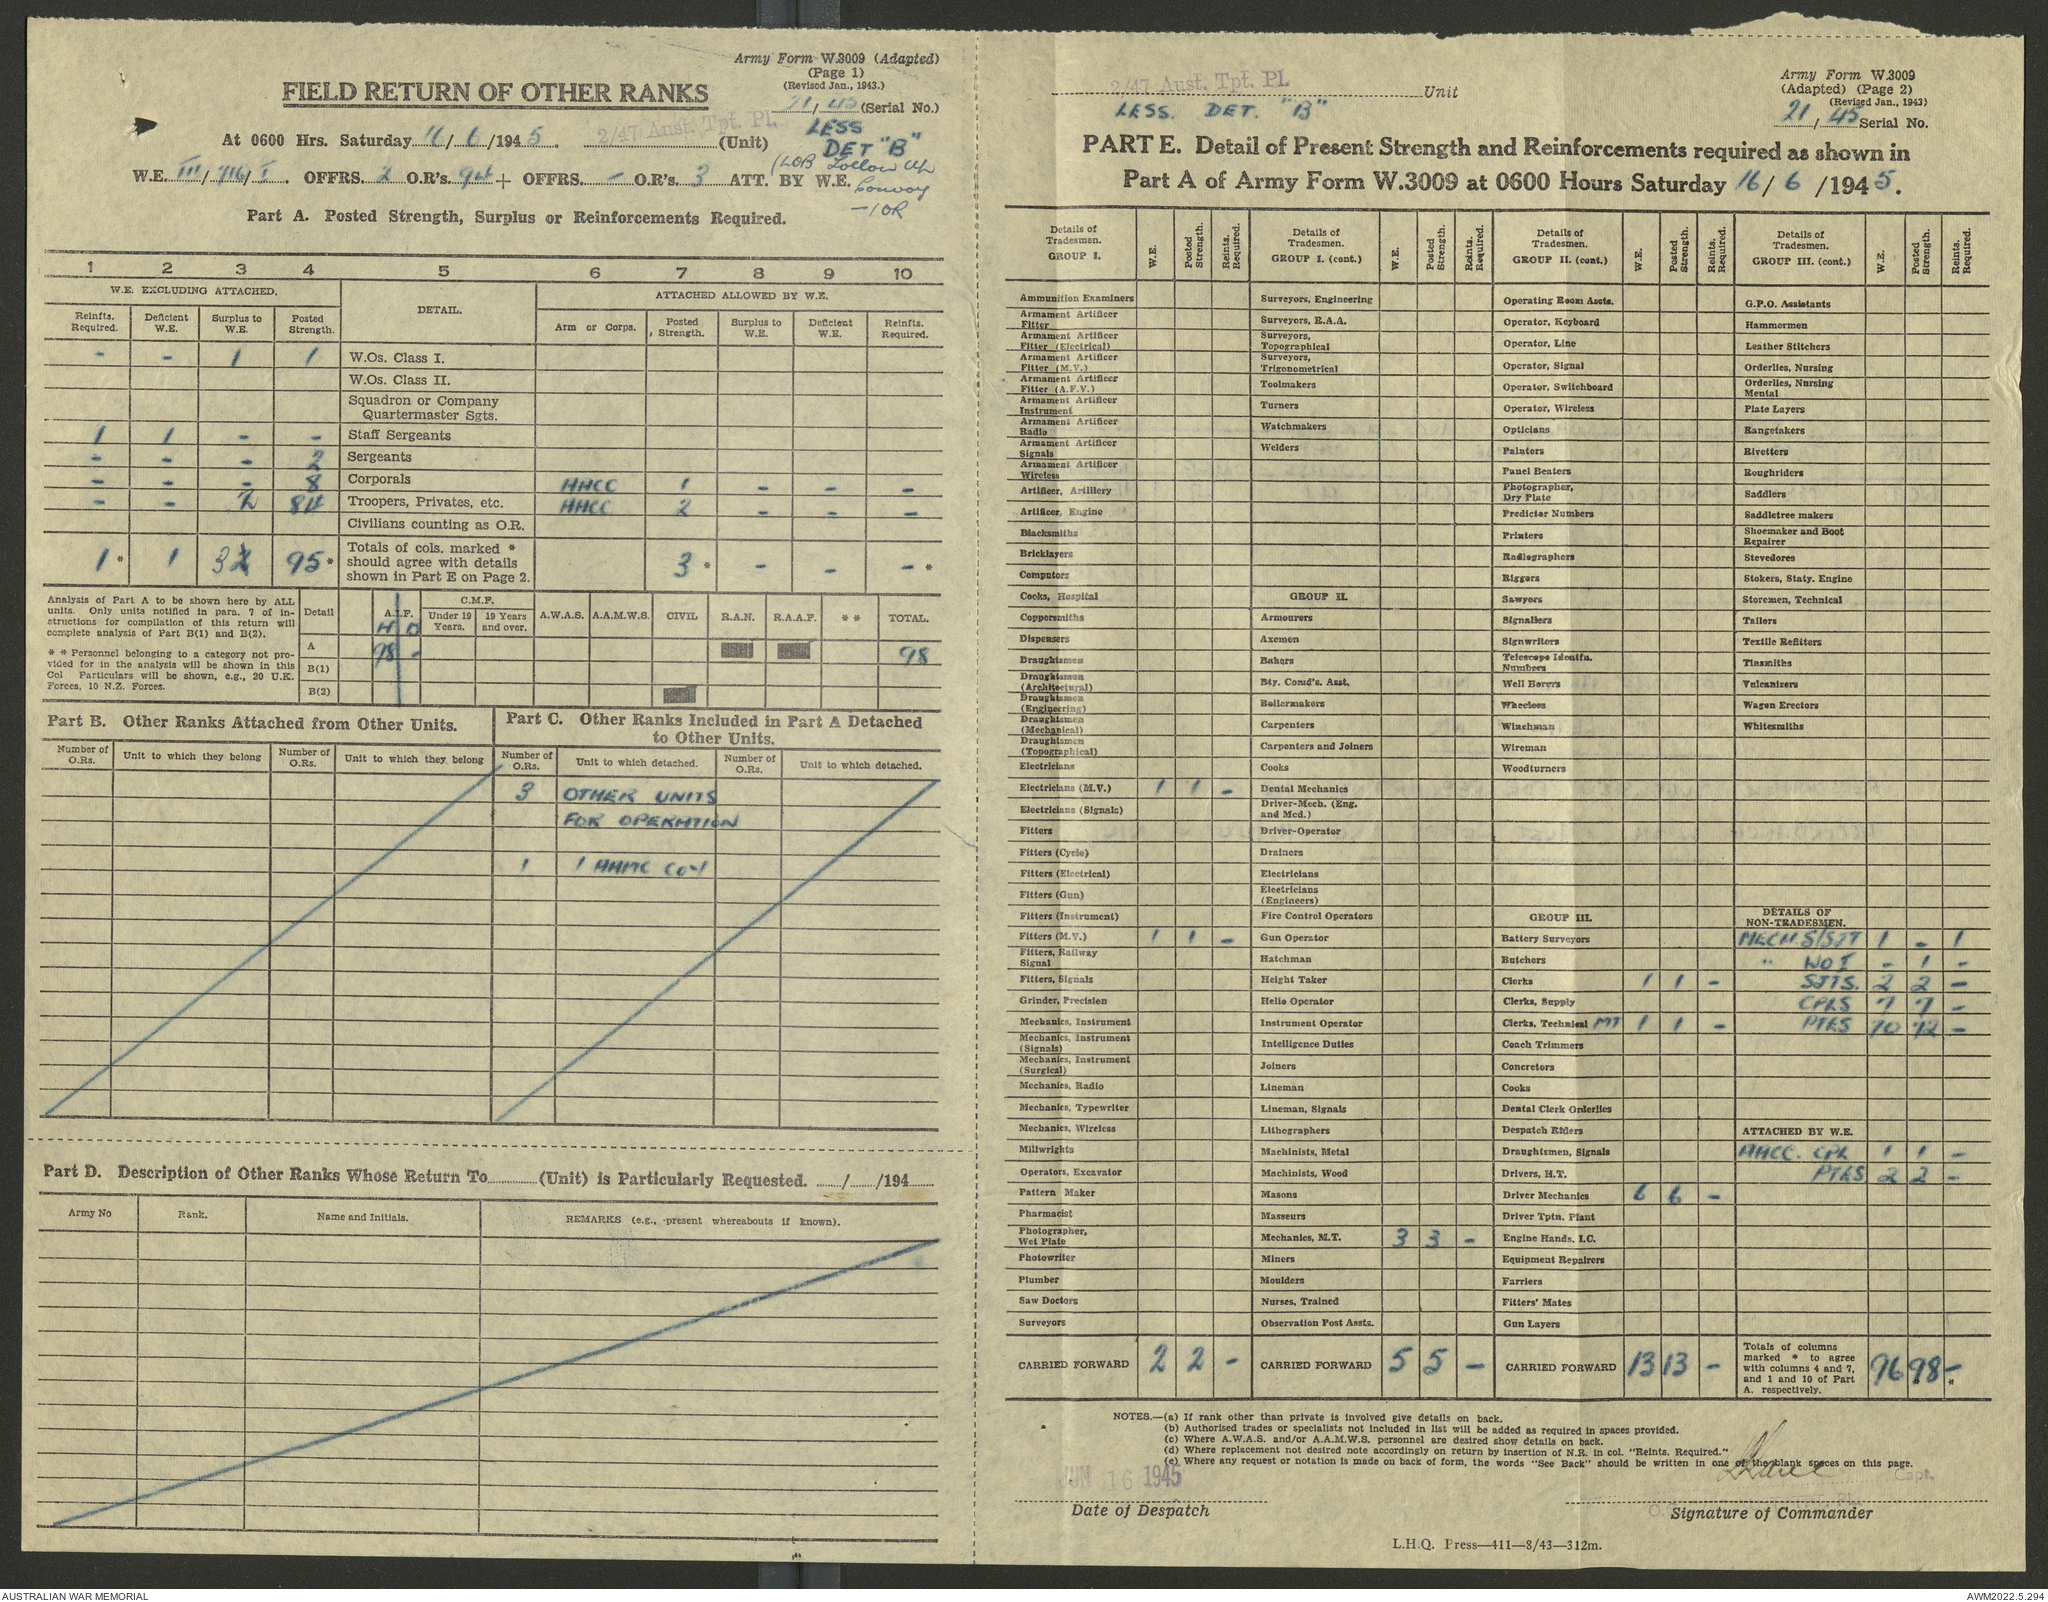 Army Form W.3009 (Adapted)
(Page 1)
(Revised Jan., 1943.)
FIELD RETURN OF OTHER RANKS
21/45 (Serial No.)
At 0600 Hrs. Saturday 16/6/1945. 2/47 Aust. Tpt. PL (Unit) LESS DET "B"
(LOB Follow Up Convoy
-1 OR
W.E. III/716/I. OFFRS. 2 O.R's. 94 + OFFRS. - O.R's. 3 ATT. BY W.E.
Part A. Posted Strength, Surplus or Reinforcements Required.
1 2 3 4 5 6 7 8 9 10
W.E. EXCLUDING ATTACHED. DETAIL. ATTACHED ALLOWED BY W.E.
Reinfts. Required. Deficient W.E. Surplus to W.E. Posted Strength. Arm or Corps. Posted Strength. Surplus to W.E. Deficient W.E. Reinfts. Required.
- - 1 1 W.Os. Class I.
W.Os. Class II.
Squadron or Company Quartermaster Sgts.
1 1 - - Staff Sergeants
- - - 2 Sergeants
- - - 8 Corporals AACC 1 - - -
- - 2 84 Troopers, Privates, etc. AACC 2 - - -
Civilians counting as O.R.
1* 1 3 95* Totals of cols. marked * should agree with details shown in Part E on Page 2. 3* - - -*
Analysis of Part A to be shown here by ALL units. Only units notified in para. 7 of instructions for compilation of this return will complete analysis of Part B(1) and B(2).
* * Personnel belonging to a category not provided for in the analysis will be shown in this Col Particulars will be shown, e.g., 20 U.K. Forces, 10 N.Z. Forces.
Detail A.I.F. C.M.F. Under 19 Years. 19 Years and over. A.W.A.S. A.A.M.W.S. CIVIL R.A.N. R.A.A.F. * * TOTAL.
A 98 - 98
B(1)
B(2)
Part B. Other Ranks Attached from Other Units.
Number of O.Rs. Unit to which they belong Number of O.Rs. Unit to which they belong
Part C. Other Ranks Included in Part A Detached to Other Units.
Number of O.Rs. Unit to which detached. Number of O.Rs. Unit to which detached.
3 OTHER UNITS
FOR OPERATION
1 1 AAMC Coy
Part D. Description of Other Ranks Whose Return To (Unit) is Particularly Requested. / /194
Army No Rank. Name and Initials. REMARKS (e.g., present whereabouts if known).
2/47 Aust. Tpt. PL Unit
LESS. DET. "B"
Army Form W.3009
(Adapted) (Page 2)
(Revised Jan., 1943)
21/45 Serial No.
PART E. Detail of Present Strength and Reinforcements required as shown in
Part A of Army Form W.3009 at 0600 Hours Saturday 16/6/1945.
Details of Tradesmen. GROUP I. W.E. Posted Strength. Reints. Required.
Ammunition Examiners
Armament Artificer Fitter
Armament Artificer Fitter (Electrical)
Armament Artificer Fitter (M.V.)
Armament Artificer Fitter (A.F.V.)
Armament Artificer Instrument
Armament Artificer Radio
Armament Artificer Signals
Armament Artificer Wireless
Artificer, Artillery
Artificer, Engine
Blacksmiths
Bricklayers
Computors
Cooks, Hospital
Coppersmiths
Dispensers
Draughtsmen
Draughtsmen (Architectural)
Draughtsmen (Engineering)
Draughtsmen (Mechanical)
Draughtsmen (Topographical)
Electricians
Electricians (M.V.) 1 1 -
Electricians (Signals)
Fitters
Fitters (Cycle)
Fitters (Electrical)
Fitters (Gun)
Fitters (Instrument)
Fitters (M.V.) 1 1 -
Fitters, Railway Signal
Fitters, Signals
Grinder, Precision
Mechanics, Instrument
Mechanics, Instrument (Signals)
Mechanics, Instrument (Surgical)
Mechanics, Radio
Mechanics, Typewriter
Mechanics, Wireless
Millwrights
Operators, Excavator
Pattern Maker
Pharmacist
Photographer, Wet Plate
Photowriter
Plumber
Saw Doctors
Surveyors
CARRIED FORWARD 2 2 -
Details of Tradesmen. GROUP I. (cont.) W.E. Posted Strength. Reints. Required.
Surveyors, Engineering
Surveyors, R.A.A.
Surveyors, Topographical
Surveyors, Trigonometrical
Toolmakers
Turners
Watchmakers
Welders
GROUP II.
Armourers
Axemen
Bakers
Bty. Comd's. Asst.
Boilermakers
Carpenters
Carpenters and Joiners
Cooks
Dental Mechanics
Driver-Mech. (Eng. and Mcd.)
Driver-Operator
Drainers
Electricians
Electricians (Engineers)
Fire Control Operators
Gun Operator
Hatchman
Height Taker
Helio Operator
Instrument Operator
Intelligence Duties
Joiners
Lineman
Lineman, Signals
Lithographers
Machinists, Metal
Machinists, Wood
Masons
Masseurs
Mechanics, M.T. 3 3 -
Miners
Moulders
Nurses, Trained
Observation Post Assts.
CARRIED FORWARD 5 5 -
Details of Tradesmen. GROUP II. (cont.) W.E. Posted Strength. Reints. Required.
Operating Room Assts.
Operator, Keyboard
Operator, Line
Operator, Signal
Operator, Switchboard
Operator, Wireless
Opticians
Painters
Panel Beaters
Photographer, Dry Plate
Predictor Numbers
Printers
Radiographers
Riggers
Sawyers
Signallers
Signwriters
Telescope Identfn. Numbers
Well Borers
Wheelers
Winchman
Wireman
Woodturners
GROUP III.
Battery Surveyors
Butchers
Clerks 1 1 -
Clerks, Supply
Clerks, Technical MT 1 1 -
Coach Trimmers
Concretors
Cooks
Dental Clerk Orderlies
Despatch Riders
Draughtsmen, Signals
Drivers, H.T.
Driver Mechanics 6 6 -
Driver Tptn. Plant
Engine Hands, I.C.
Equipment Repairers
Farriers
Fitters' Mates
Gun Layers
CARRIED FORWARD 13 13 -
Details of Tradesmen. GROUP III. (cont.) W.E. Posted Strength. Reints. Required.
G.P.O. Assistants
Hammermen
Leather Stitchers
Orderlies, Nursing
Orderlies, Nursing Mental
Plate Layers
Rangetakers
Rivetters
Roughriders
Saddlers
Saddletree makers
Shoemaker and Boot Repairer
Stevedores
Stokers, Staty. Engine
Storemen, Technical
Tailors
Textile Refitters
Tinsmiths
Vulcanizers
Wagon Erectors
Whitesmiths
DETAILS OF NON-TRADESMEN.
MECH S/SJT 1 - 1
" WO I - 1 -
SJTS. 2 2 -
CPLS 7 7 -
PTES 70 72 -
ATTACHED BY W.E.
AACC. CPL 1 1 -
PTES 2 2 -
Totals of columns marked * to agree with columns 4 and 7, and 1 and 10 of Part A. respectively. 96 98* -*
NOTES.—(a) If rank other than private is involved give details on back.
(b) Authorised trades or specialists not included in list will be added as required in spaces provided.
(c) Where A.W.A.S. and/or A.A.M.W.S. personnel are desired show details on back.
(d) Where replacement not desired note accordingly on return by insertion of N.R. in col. "Reints. Required."
(e) Where any request or notation is made on back of form, the words "See Back" should be written in one of the blank spaces on this page.
JUN 16 1945
Capt.
Date of Despatch
Signature of Commander
L.H.Q. Press—411—8/43—312m.
AUSTRALIAN WAR MEMORIAL
AWM2022.5.294